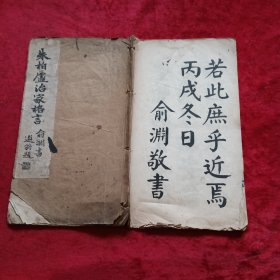 若此庶乎近焉
丙戌冬日
俞淵敬書
朱柏廬治家格言
俞淵書